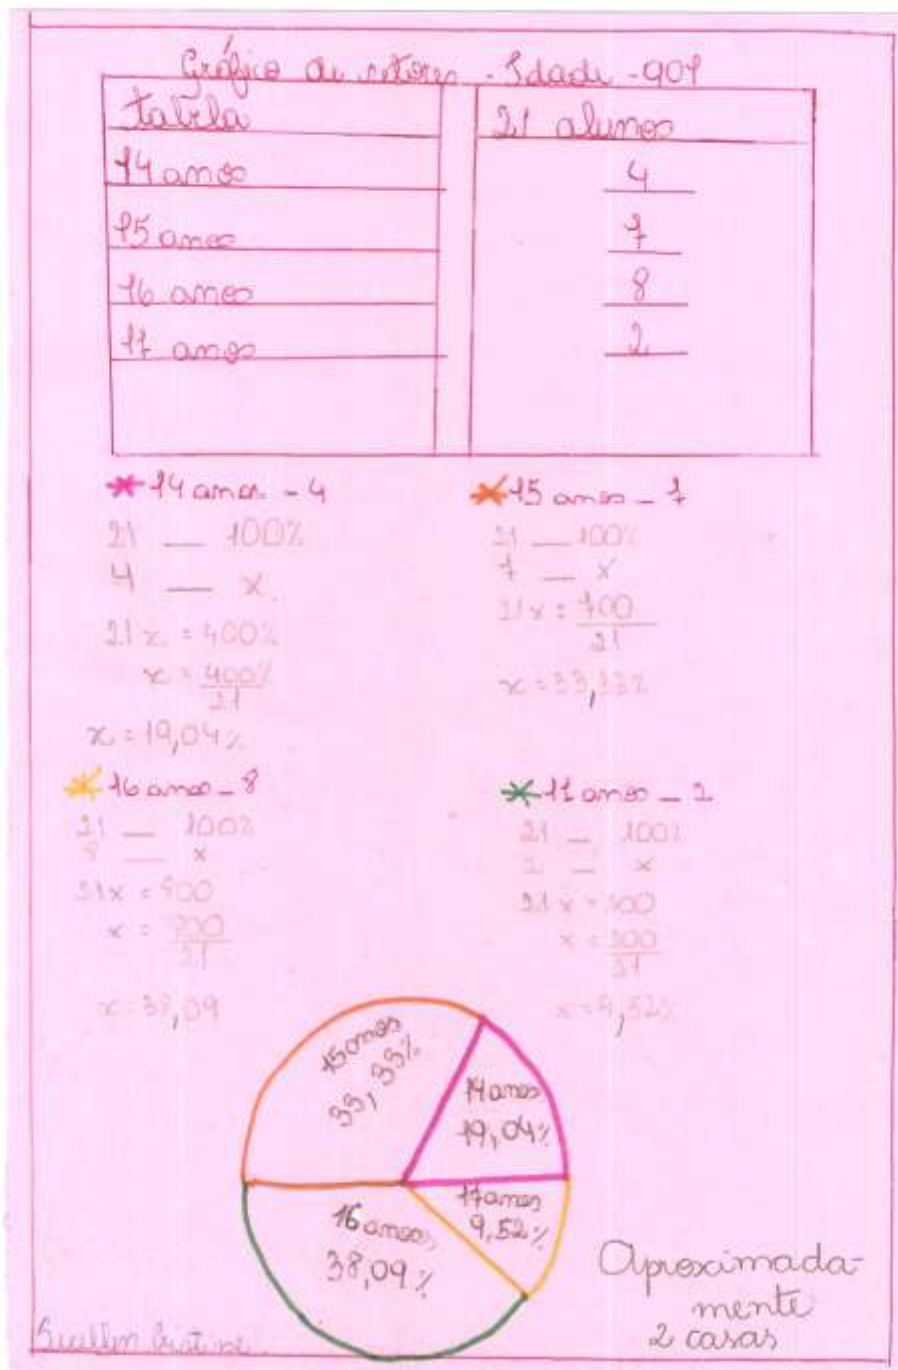 Gráfico de setores - Idade - 901
tabela
21 alunos
14 anos
4
15 anos
7
16 anos
8
17 anos
2
14 anos - 4
21 — 100%
4 — x
21x = 400%
x = 400%
21
x = 19,04%
15 anos - 7
21 — 100%
7 — x
21x = 700
21
x = 33,33%
16 anos - 8
21 — 100%
8 — x
21x = 800
x = 800
21
x = 38,09
17 anos - 2
21 — 100%
2 — x
21x = 200
x = 200
21
x = 9,52%
15 anos
33,33%
14 anos
19,04%
17 anos
9,52%
16 anos
38,09%
Aproximada-
mente
2 casas
Suellen Cristine